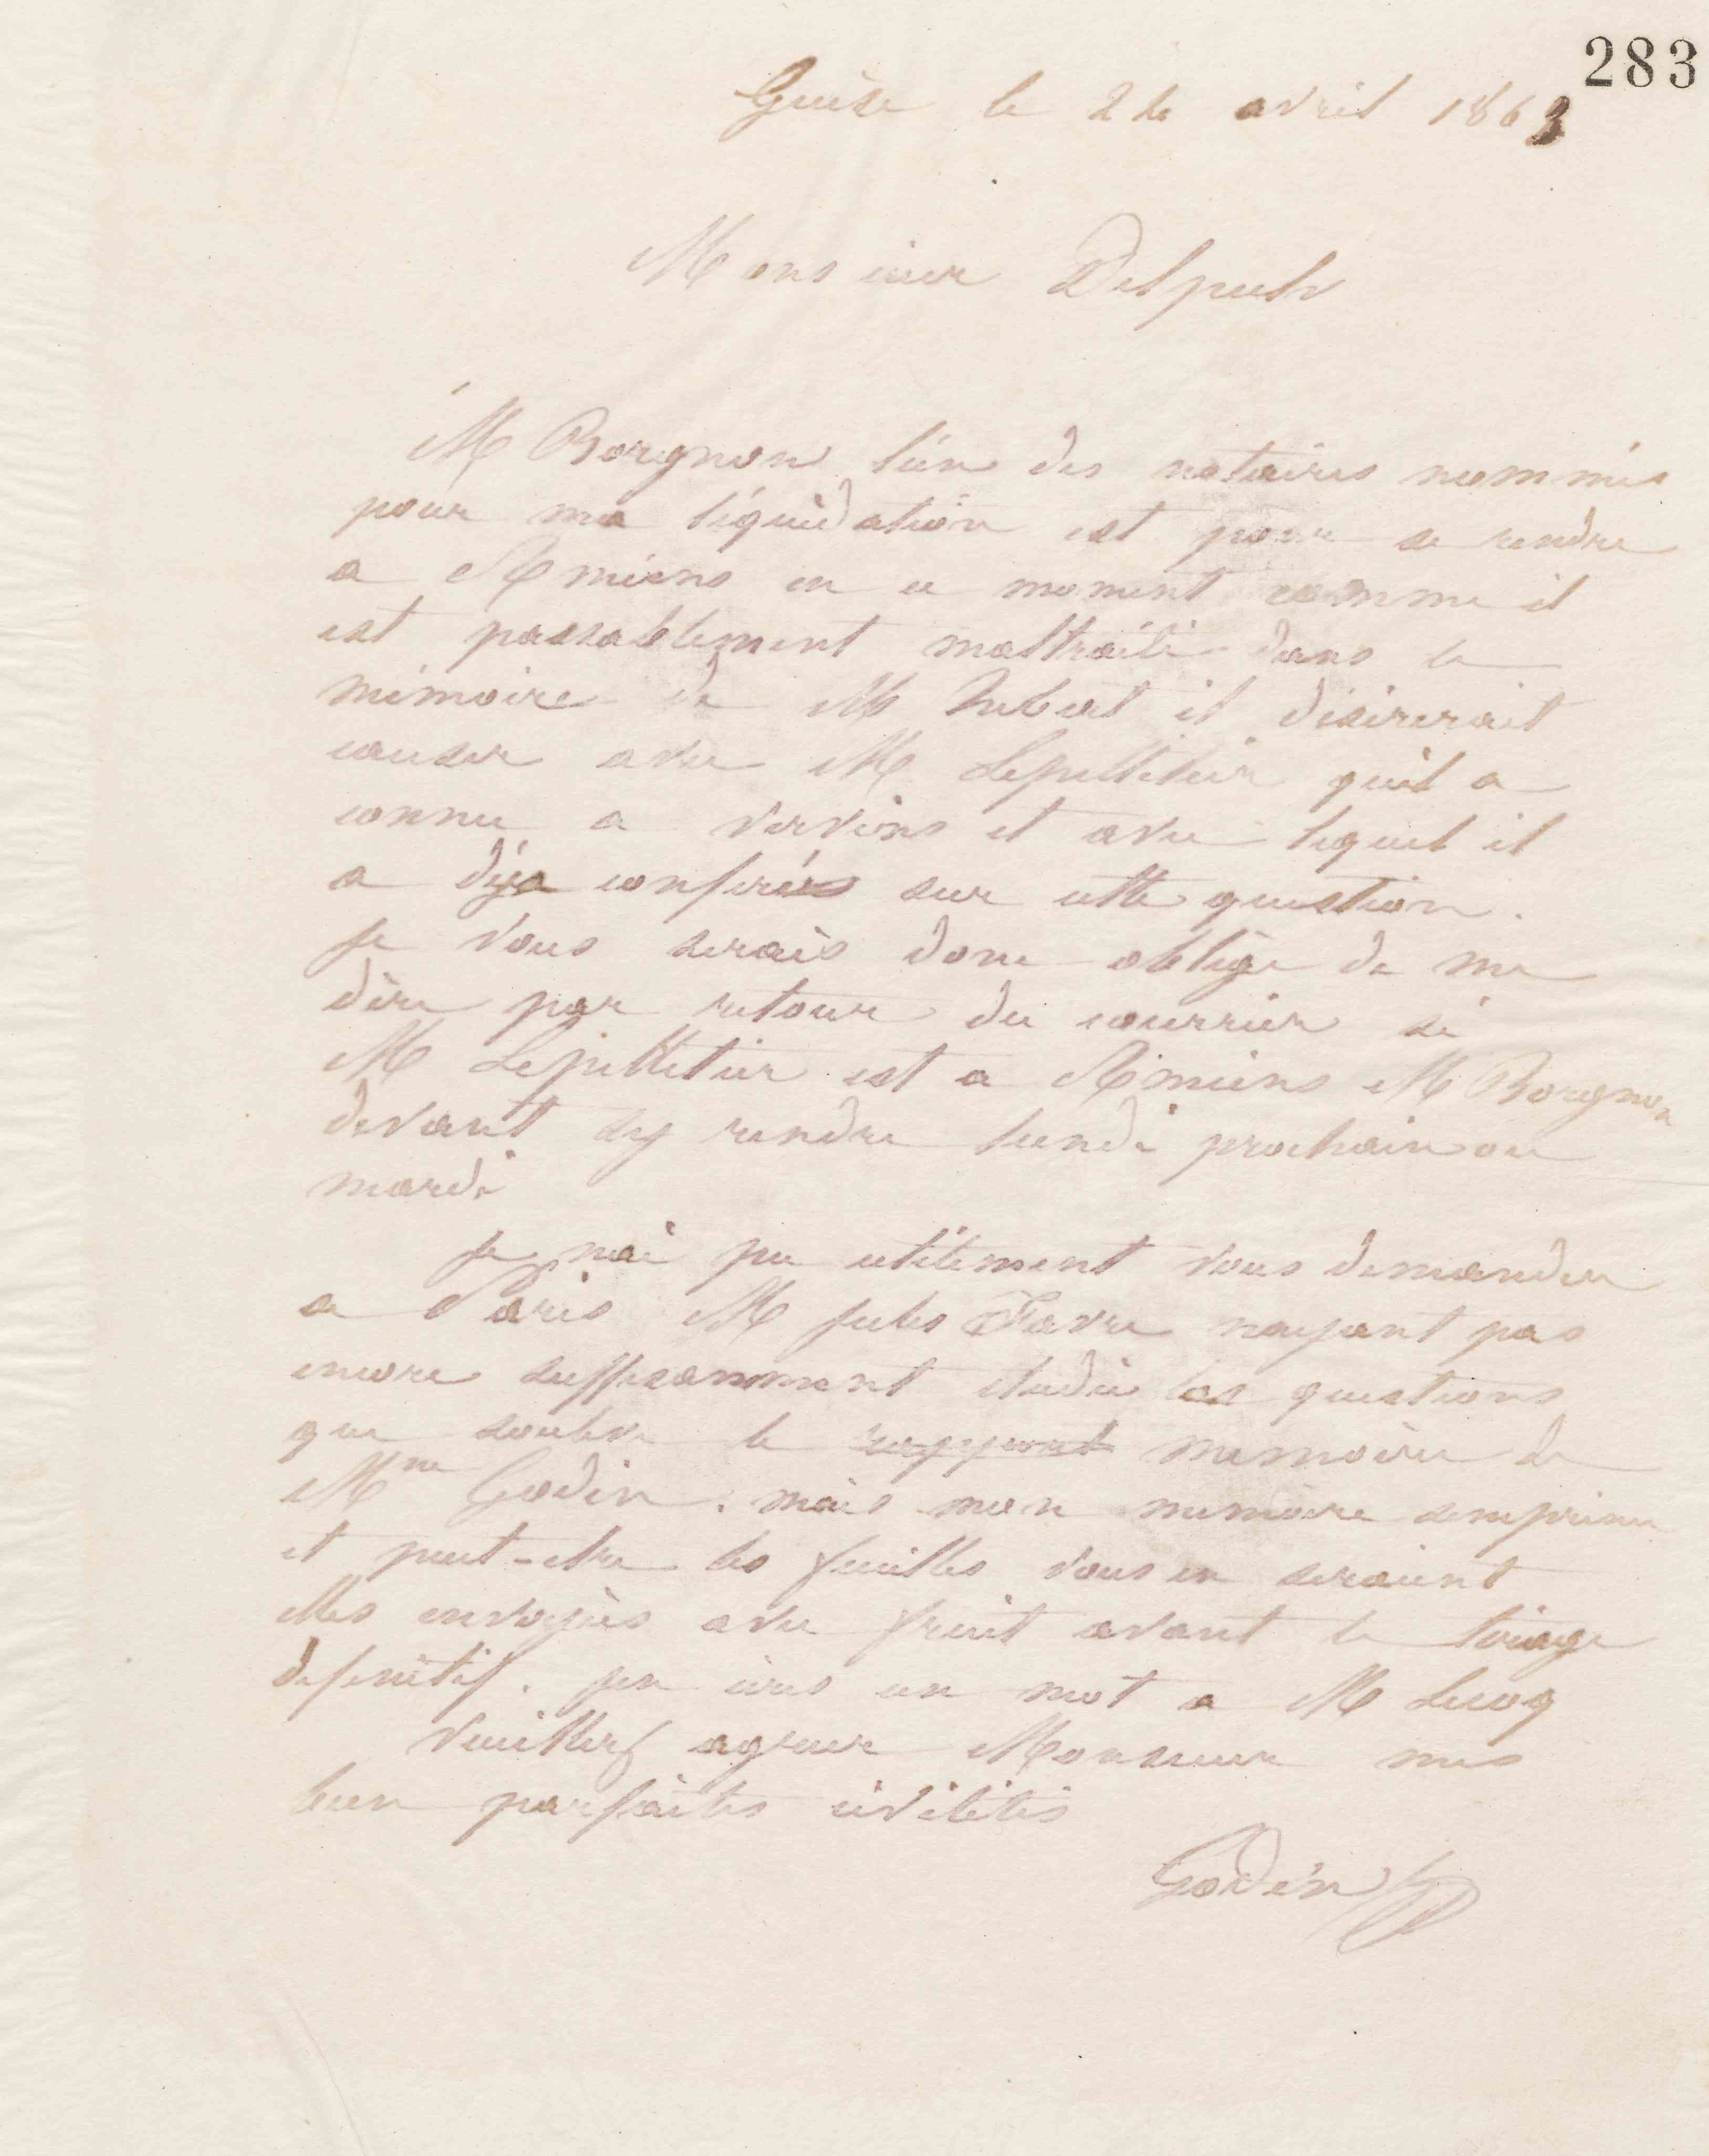 283
Guise le 24 avril 1863
Monsieur Delpech
M Borgnon l'un des notaires nommés
pour ma liquidation est pour se rendre
a Amiens en ce moment comme il
est passablement maltraité dans le
mémoire de M il désirerait
causer avec M Lepelletier quil a
connu a Vervins et avec lequel il
a déja conféré sur cette question.
je vous serais donc obligé de me
dire par retour du courrier si
M Lepelletier est a Amiens M Borgnon
devant sy rendre lundi prochain ou
mardi
je nai pu utilement vous demander
a Paris M jules Favre nayant pas
encore suffisamment étudié les questions
que soulève le rapport memoire de
Mme Godin. mais mon memoire simprime
et peut-etre les feuilles vous en seraient
elles envoyées avec fruit avant le tirage
definitif. jen écris un mot a M Lecoq
Veuillez agréer Monsieur mes
bien parfaites civilités
Godin